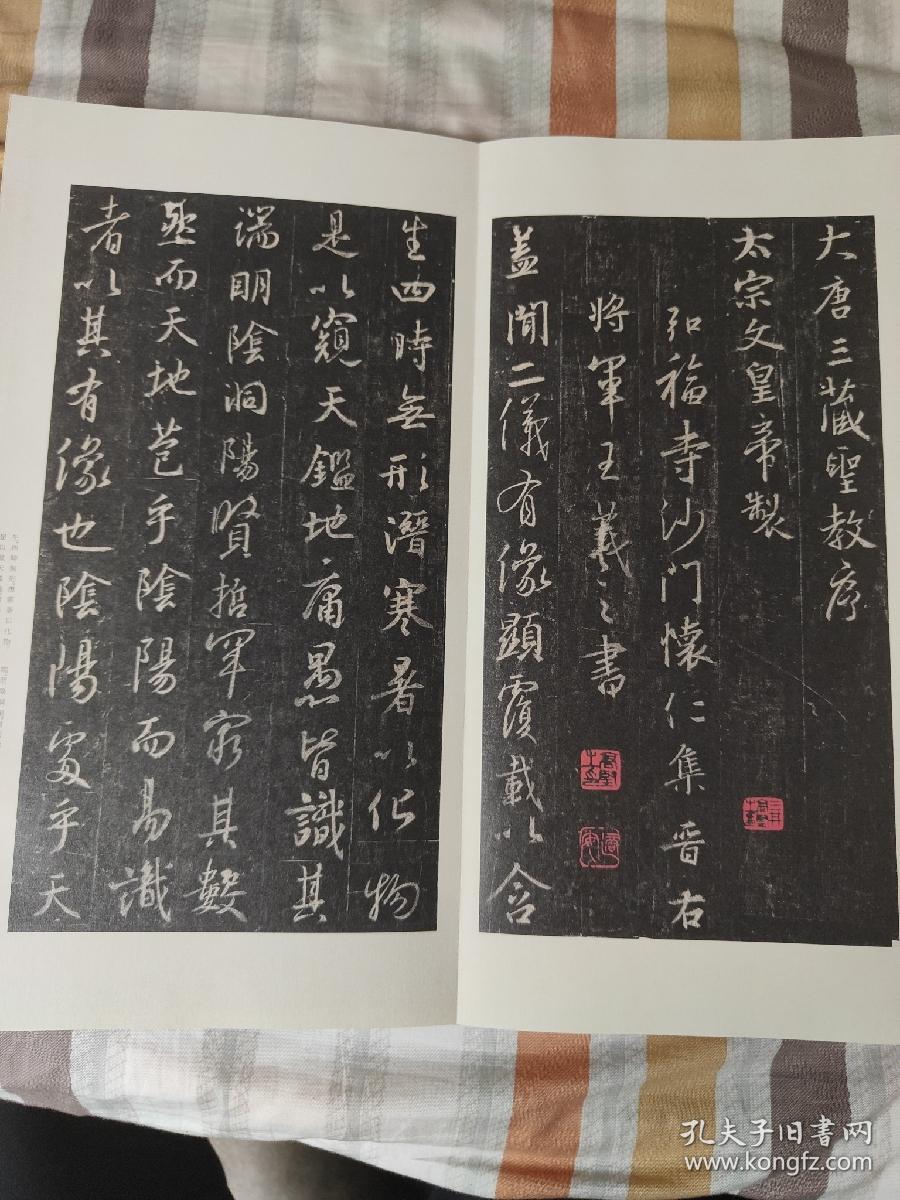 大唐三藏聖教序
太宗文皇帝製
弘福寺沙門懷仁集晋右
將軍王羲之書
蓋聞二儀有像顯覆載以含
生四時無形潛寒暑以化物
是以窺天鑑地庸愚皆識其
端明陰洞陽賢哲罕窮其數
然而天地苞乎陰陽而易識
者以其有像也陰陽處乎天
孔夫子旧书网
www.kongfz.com